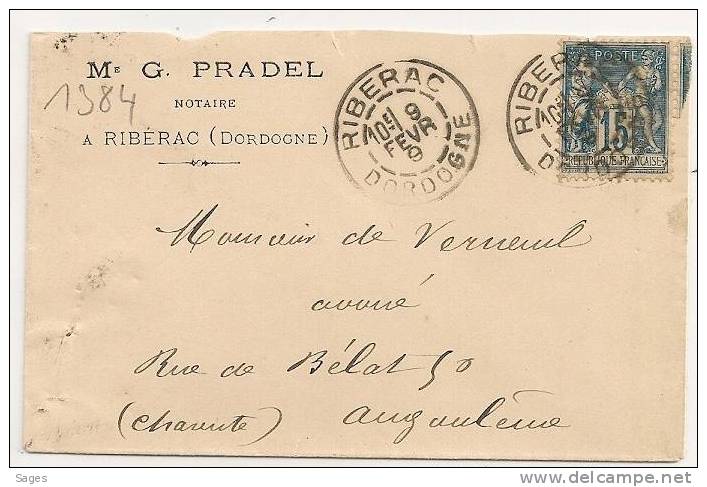 Mᴱ G. PRADEL
1384
NOTAIRE
A RIBÉRAC (DORDOGNE)
RIBERAC
10ᴱ/ 9
FEVR
9
DORDOGNE
RIBERAC
POSTES
15
REPUBLIQUE FRANÇAISE
Monsieur de Verneuil
avoué
Rue de Bélat 50
(Charente) Angoulême
Sages
www.delcampe.net